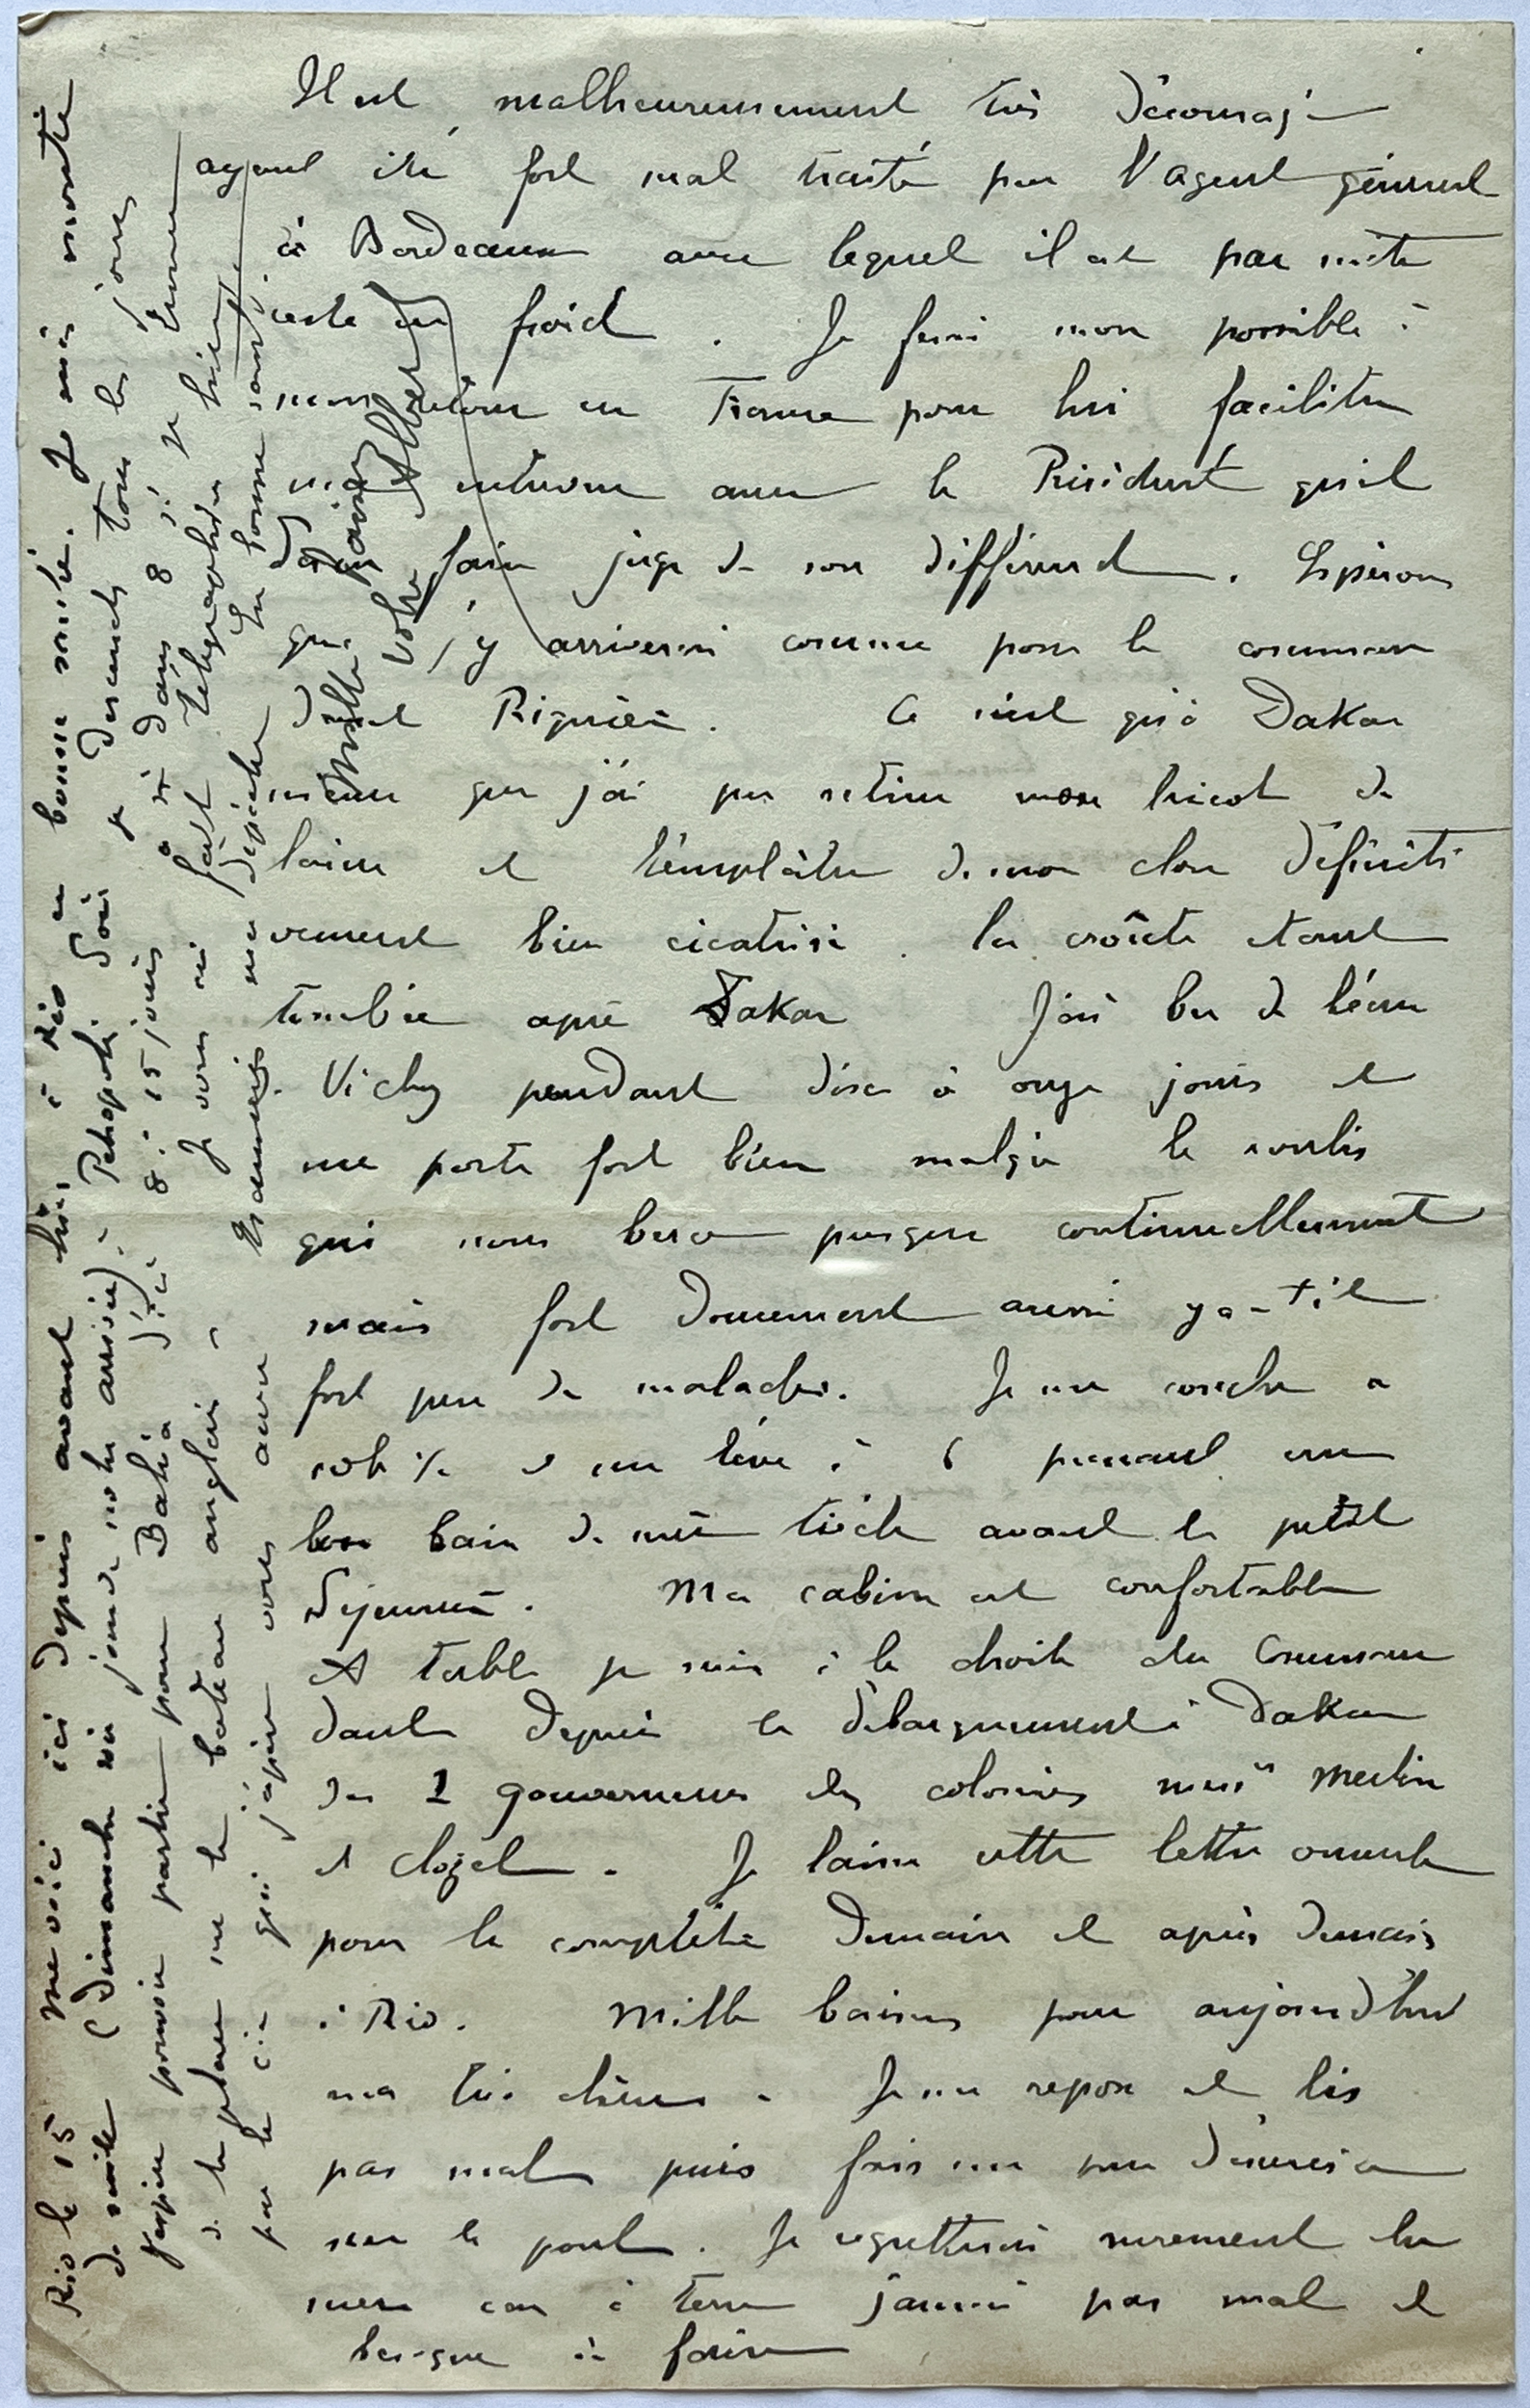 Il est malheureusement très découragé
ayant été fort mal traité par l'agent général
à Bordeaux avec lequel il est par suite
resté en froid. Je ferai mon possible à
mon retour en France pour lui faciliter
une entrevue avec le Président qu'il
faire juge de son différend. Espérons
que j'y arriverai comme pour le comman
dant Riguier. Ce n'est qu'à Dakar
même que j'ai pu retirer mon tricot de
laine et l'emplâtre de mon clou définiti
vement bien cicatrisé. la croûte étant
tombée après Dakar J'ai bu de l'eau
Vichy pendant dix à onze jours et
me porte fort bien malgré le roulis
qui nous berce presque continuellement
mais fort doucement aussi y a-t-il
fort peu de malades. Je me couche à
½ et me lève à 6 prenant un
bon bain de mer tiède avant le petit
déjeuner. Ma cabine est confortable
A table je suis à la droite du Comman
dant depuis le débarquement à Dakar
des 2 gouverneurs des colonies Merlin
et Clozel. Je laisse cette lettre ouverte
pour la compléter demain et après demain
à Rio. Mille baisers pour aujourd'hui
ma très chère. Je me repose et lis
pas mal puis fais un peu d'exercice
sur le pont. Je regretterai surement la
mer car à terre j'aurai pas mal de
besogne à faire
Rio le 15 me voici ici depuis avant hier à Rio en bonne santé. Je suis monté
de suite (Dimanche jour de notre arrivée) à Petropolis d'où je descends tous les jours
J'espère pouvoir partir pour Bahia d'ici 8 à 15 jours
de la place sur le bateau anglais. Je vous ai fait télégraphier
par la Cie qui j'espère vous aura transmis ma dépêche
Mille baisers
Votre Albert